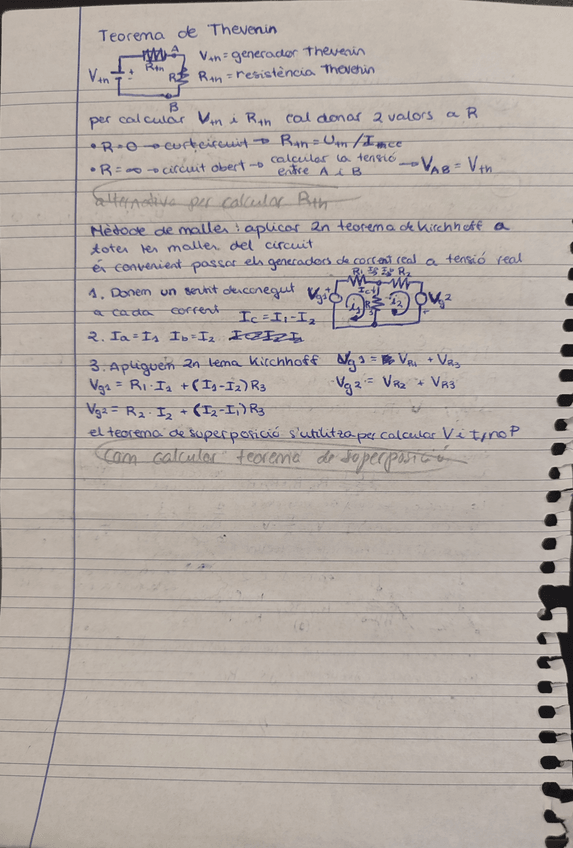 Teorema de Thevenin
A
Vth = generador Thevenin
Rth
Vth
R
Rth = resistència Thevenin
B
per calcular Vth i Rth cal donar 2 valors a R
• R=0 → curtcircuit → Rth = Uth /
• R=∞ → circuit obert → calcular la tensió entre A i B → VAB = Vth
alternativa per calcular Rth
Mètode de malles: aplicar 2n teorema de Kirchhoff a
totes les malles del circuit
és convenient passar els generadors de corrent real a tensió real
R1 R2
1. Donem un sentit desconegut
Vg1 Ic i1 i2 Vg2
a cada corrent Ic = I1 - I2
2. Ia = I1 Ib = I2
3. Apliquem 2n tema Kirchhoff Vg1 = VR1 + VR3
Vg1 = R1·I1 + (I1-I2)R3 Vg2 = VR2 + VR3
Vg2 = R2·I2 + (I2-I1)R3
el teorema de superposició s'utilitza per calcular V i I, no P
Com calcular teorema de superposició